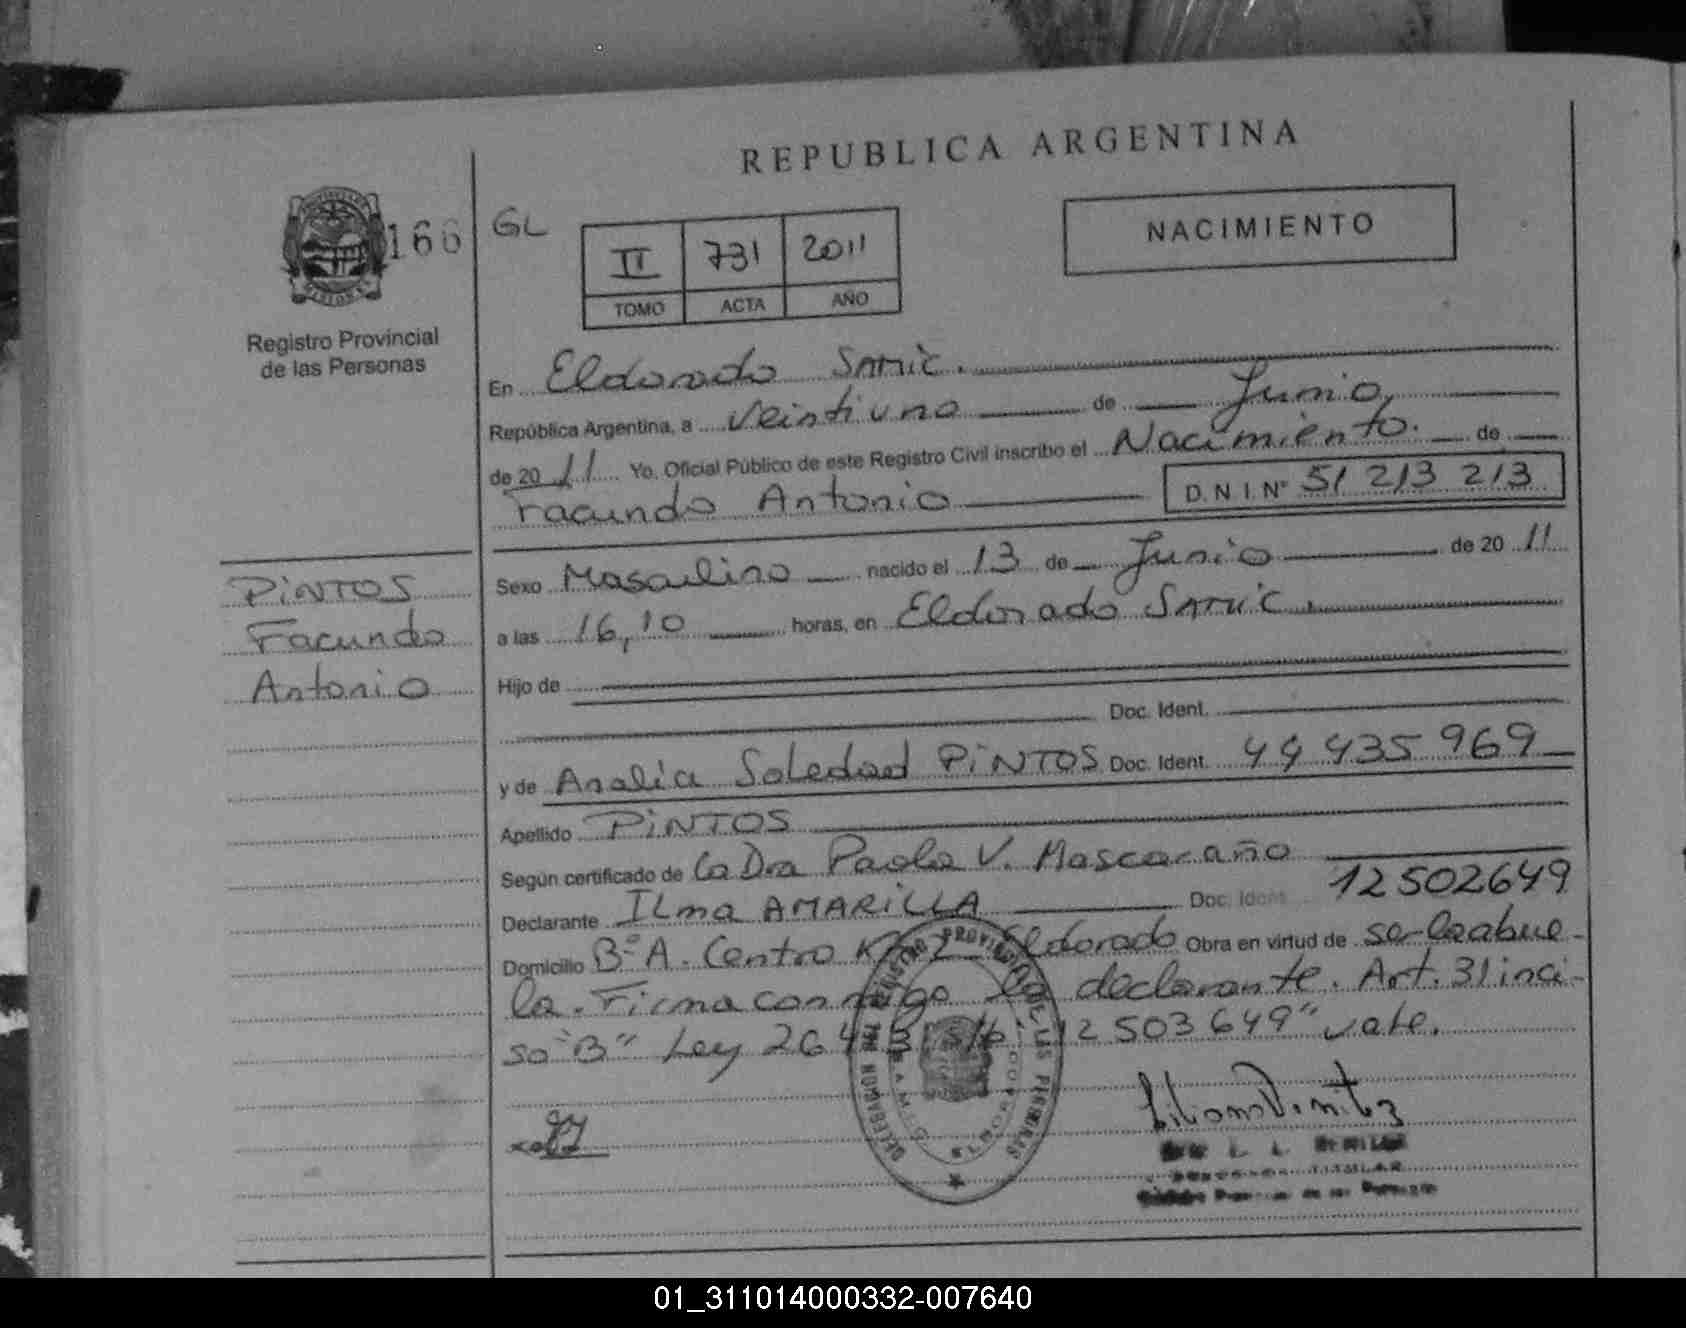 REPUBLICA ARGENTINA
166
GL
II 731 2011
TOMO ACTA AÑO
NACIMIENTO
Registro Provincial
de las Personas
En Eldorado SAMIC.
República Argentina, a Veintiuno de Junio,
de 20 11 Yo, Oficial Público de este Registro Civil inscribo el Nacimiento. de
Facundo Antonio D.N.I. N° 51 213 213
PiNTOS
Facundo
Antonio
Sexo Masculino nacido el 13 de Junio de 20 11
a las 16,10 horas, en Eldorado SAMIC.
Hijo de
Doc. Ident.
y de Analia Soledad PiNTOS Doc. Ident. 44 435 969
Apellido PiNTOS
Según certificado de la Dra Paola V. Mascaraño
Declarante ILma AMARiLLA Doc. Ident. 12502649
Domicilio B° A. Centro Km 2 Eldorado Obra en virtud de ser la abue-
la. Firma conmigo la declarante. Art. 31 inci-
so "B" Ley 26413 12 503 649" vale.
REGISTRO PROVINCIAL DE LAS PERSONAS
01_311014000332-007640